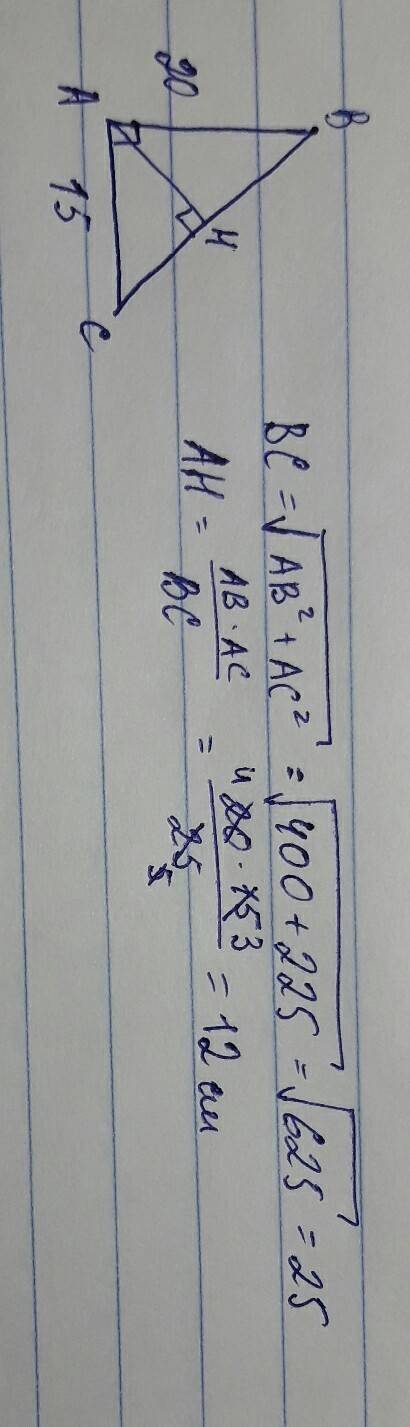 B
20
H
A
15
C
BC = √AB² + AC² = √400 + 225 = √625 = 25
AH = AB · AC / BC = 4 20 · 15 3 / 25 5 = 12 см